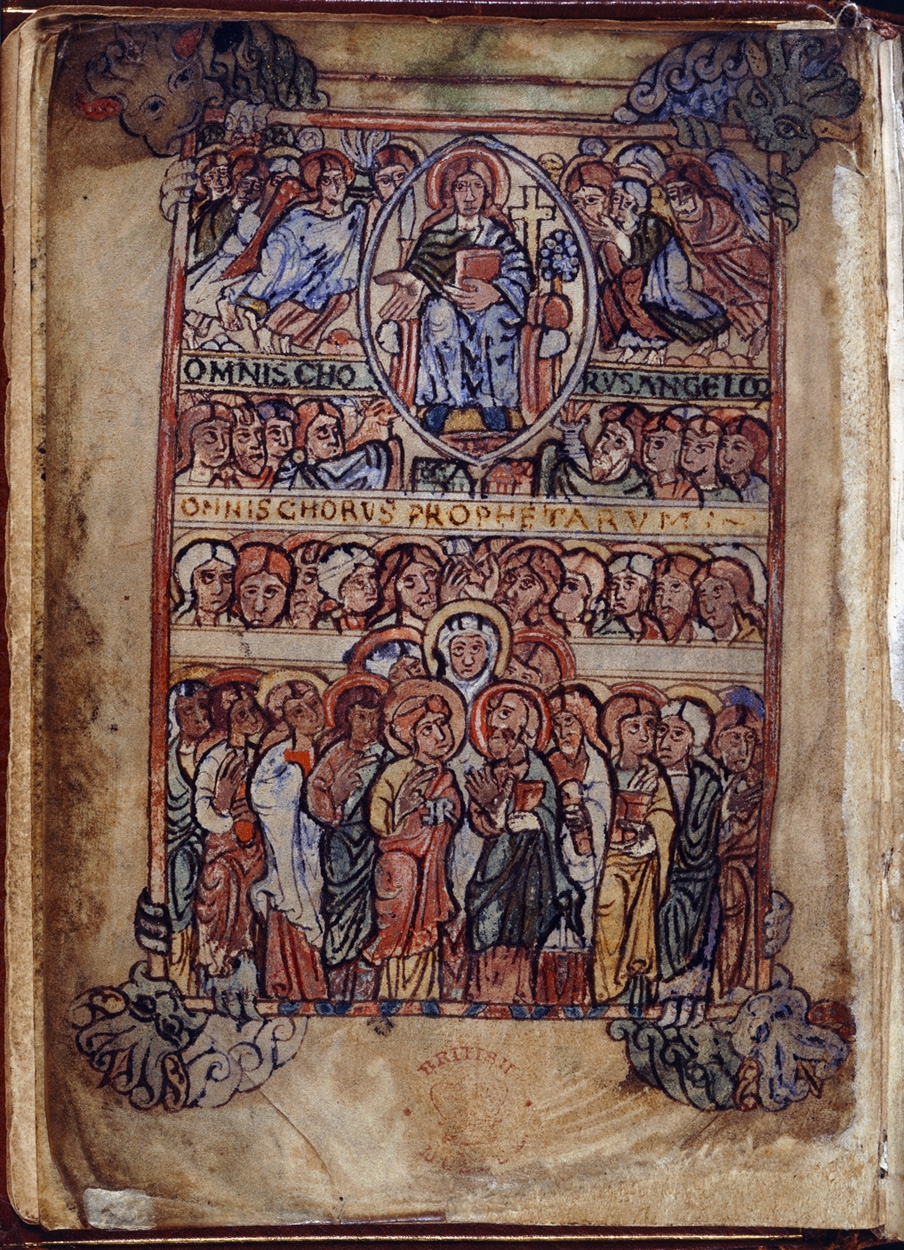 OMNIS CHORUS ANGELOR
OMNIS CHORUS PROPHETARUM
BRITISH